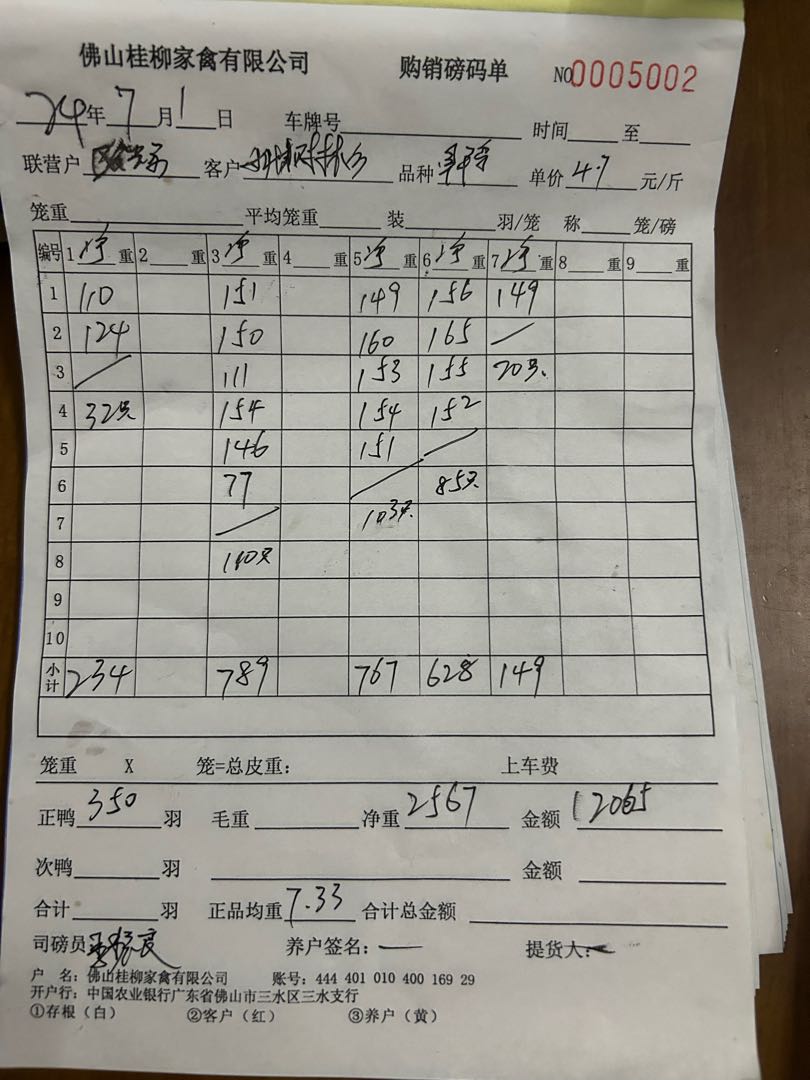 佛山桂柳家禽有限公司 购销磅码单 NO0005002
24年7月1日 车牌号 时间 至
联营户 客户 品种 单价4.7元/斤
笼重 平均笼重 装 羽/笼 称 笼/磅
编号 1净重 2 重 3净重 4 重 5净重 6净重 7净重 8 重 9 重
1 110 151 149 156 149
2 124 150 160 165
3 111 153 155 20只
4 32只 154 154 152
5 146 151
6 77 85只
7 103只
8 110只
9
10
小计 234 789 767 628 149
笼重 X 笼=总皮重: 上车费
正鸭350羽 毛重 净重2567 金额12065
次鸭 羽 金额
合计 羽 正品均重7.33 合计总金额
司磅员 养户签名: 提货人:
户 名: 佛山桂柳家禽有限公司 账号: 444 401 010 400 169 29
开户行: 中国农业银行广东省佛山市三水区三水支行
①存根(白) ②客户(红) ③养户(黄)